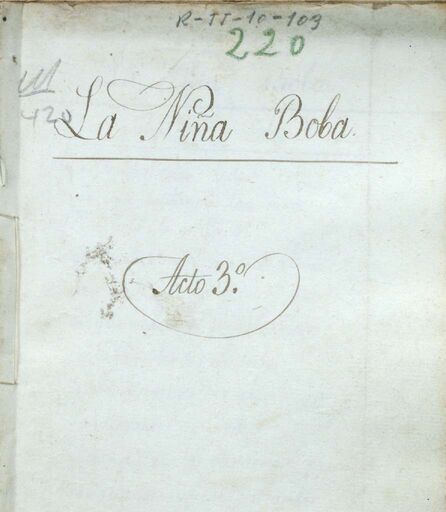 R-II-10-103
220
420
La Niña Boba.
Acto 3.º